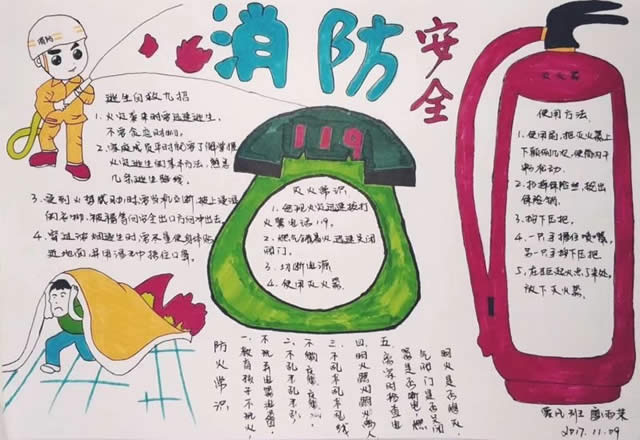 消防
安全
消防
逃生自救九招
1、火灾袭来时要迅速逃生,
不要贪恋财物。
2、家庭成员平时就要了解掌握
火灾逃生的基本方法,熟悉
几条逃生路线。
3、受到火势威胁时,要当机立断,披上浸湿
的衣物、被褥等向安全出口方向冲出去。
4、穿过浓烟逃生时,要尽量使身体贴
近地面,并用湿毛巾捂住口鼻。
119
灭火常识
1、发现火灾迅速拨打
火警电话119。
2、燃气罐着火迅速关闭
阀门。
3、切断电源
4、使用灭火器
灭火器
使用方法:
1、使用前,把灭火器上
下颠倒几次,使筒内干
粉松动。
2、拔掉保险丝,拔出
保险销。
3、按下压把。
4、一只手握住喷嘴,
另一只手按下压把。
5、在距起火点5米处,
放下灭火器。
防火常识
一、教育孩子不玩火,
不玩弄电器设备
二、不乱丢
三、不乱接乱拉电线
四、明火照明
五、离家时检查电
器是否断电,燃
气阀门是否关闭
明火是否熄灭
2017.11.09